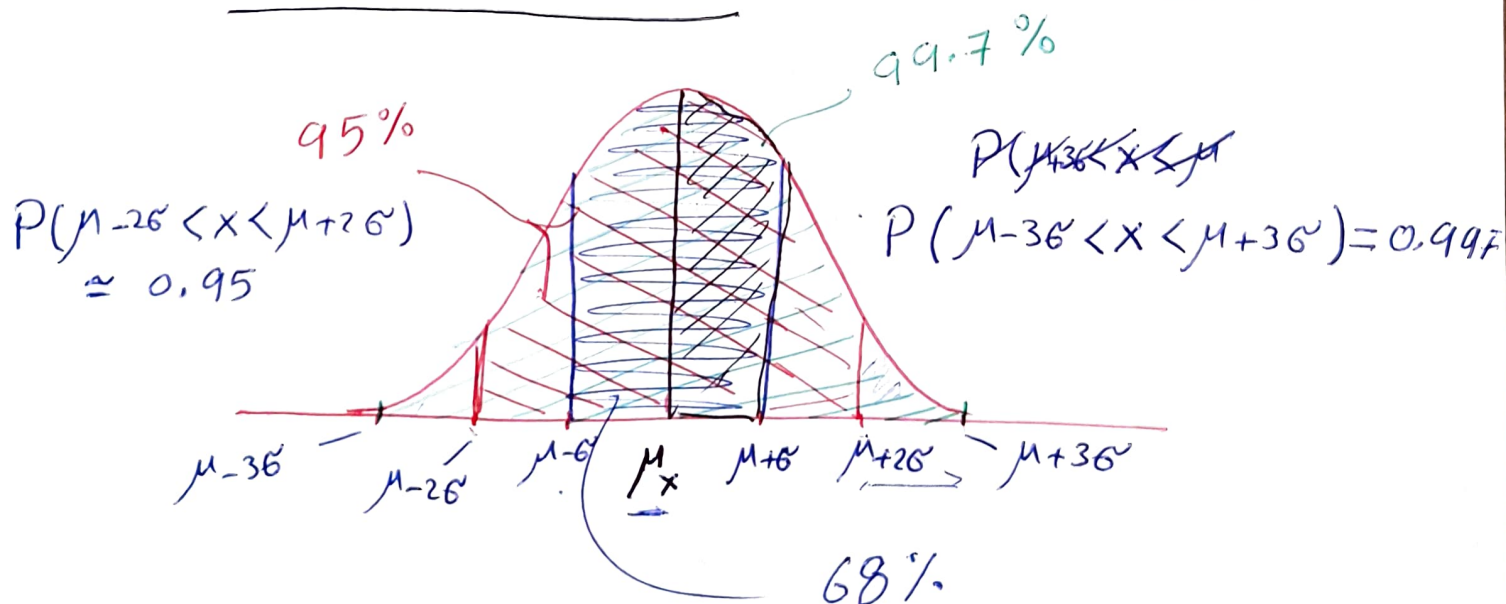 99.7%
95%
P(μ+3σ<x<μ
P(μ-2σ<x<μ+2σ)
≃ 0.95
P(μ-3σ<x<μ+3σ)=0.997
μ-3σ
μ-2σ
μ-σ
μx
μ+σ
μ+2σ
μ+3σ
68%